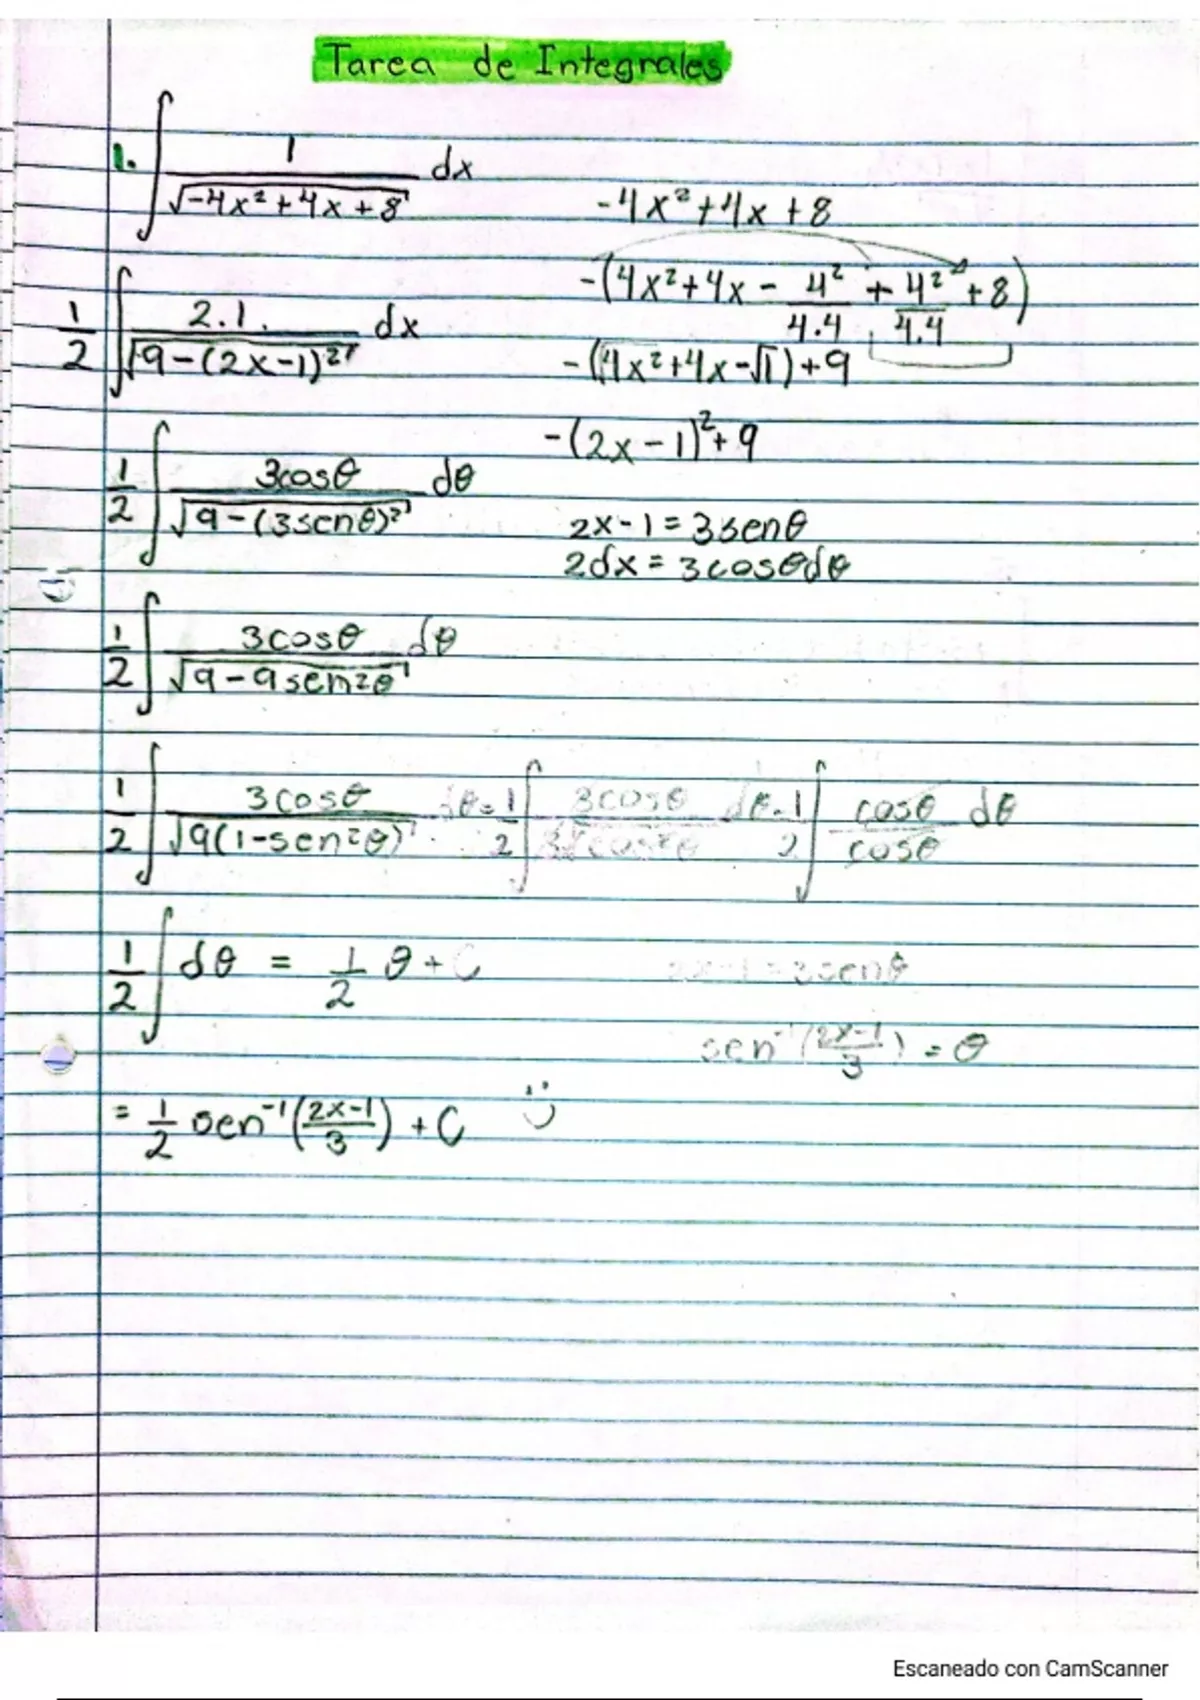 Tarea de Integrales
1. ∫ 1/√(-4x²+4x+8) dx
-4x²+4x+8
-(4x²+4x - 4²/4.4 + 4²/4.4 + 8)
1/2 ∫ 2.1/√(9-(2x-1)²) dx
-(4x²+4x-√1)+9
-(2x-1)²+9
1/2 ∫ 3cosθ/√(9-(3senθ)²) dθ
2x-1=3senθ
2dx=3cosθdθ
1/2 ∫ 3cosθ/√(9-9sen²θ) dθ
1/2 ∫ 3cosθ/√(9(1-sen²θ)) dθ = 1/2 ∫ 3cosθ/3√cos²θ dθ = 1/2 ∫ cosθ/cosθ dθ
1/2 ∫ dθ = 1/2 θ + C
2x-1=3senθ
sen⁻¹(2x-1/3) = θ
= 1/2 sen⁻¹(2x-1/3) + C
Escaneado con CamScanner